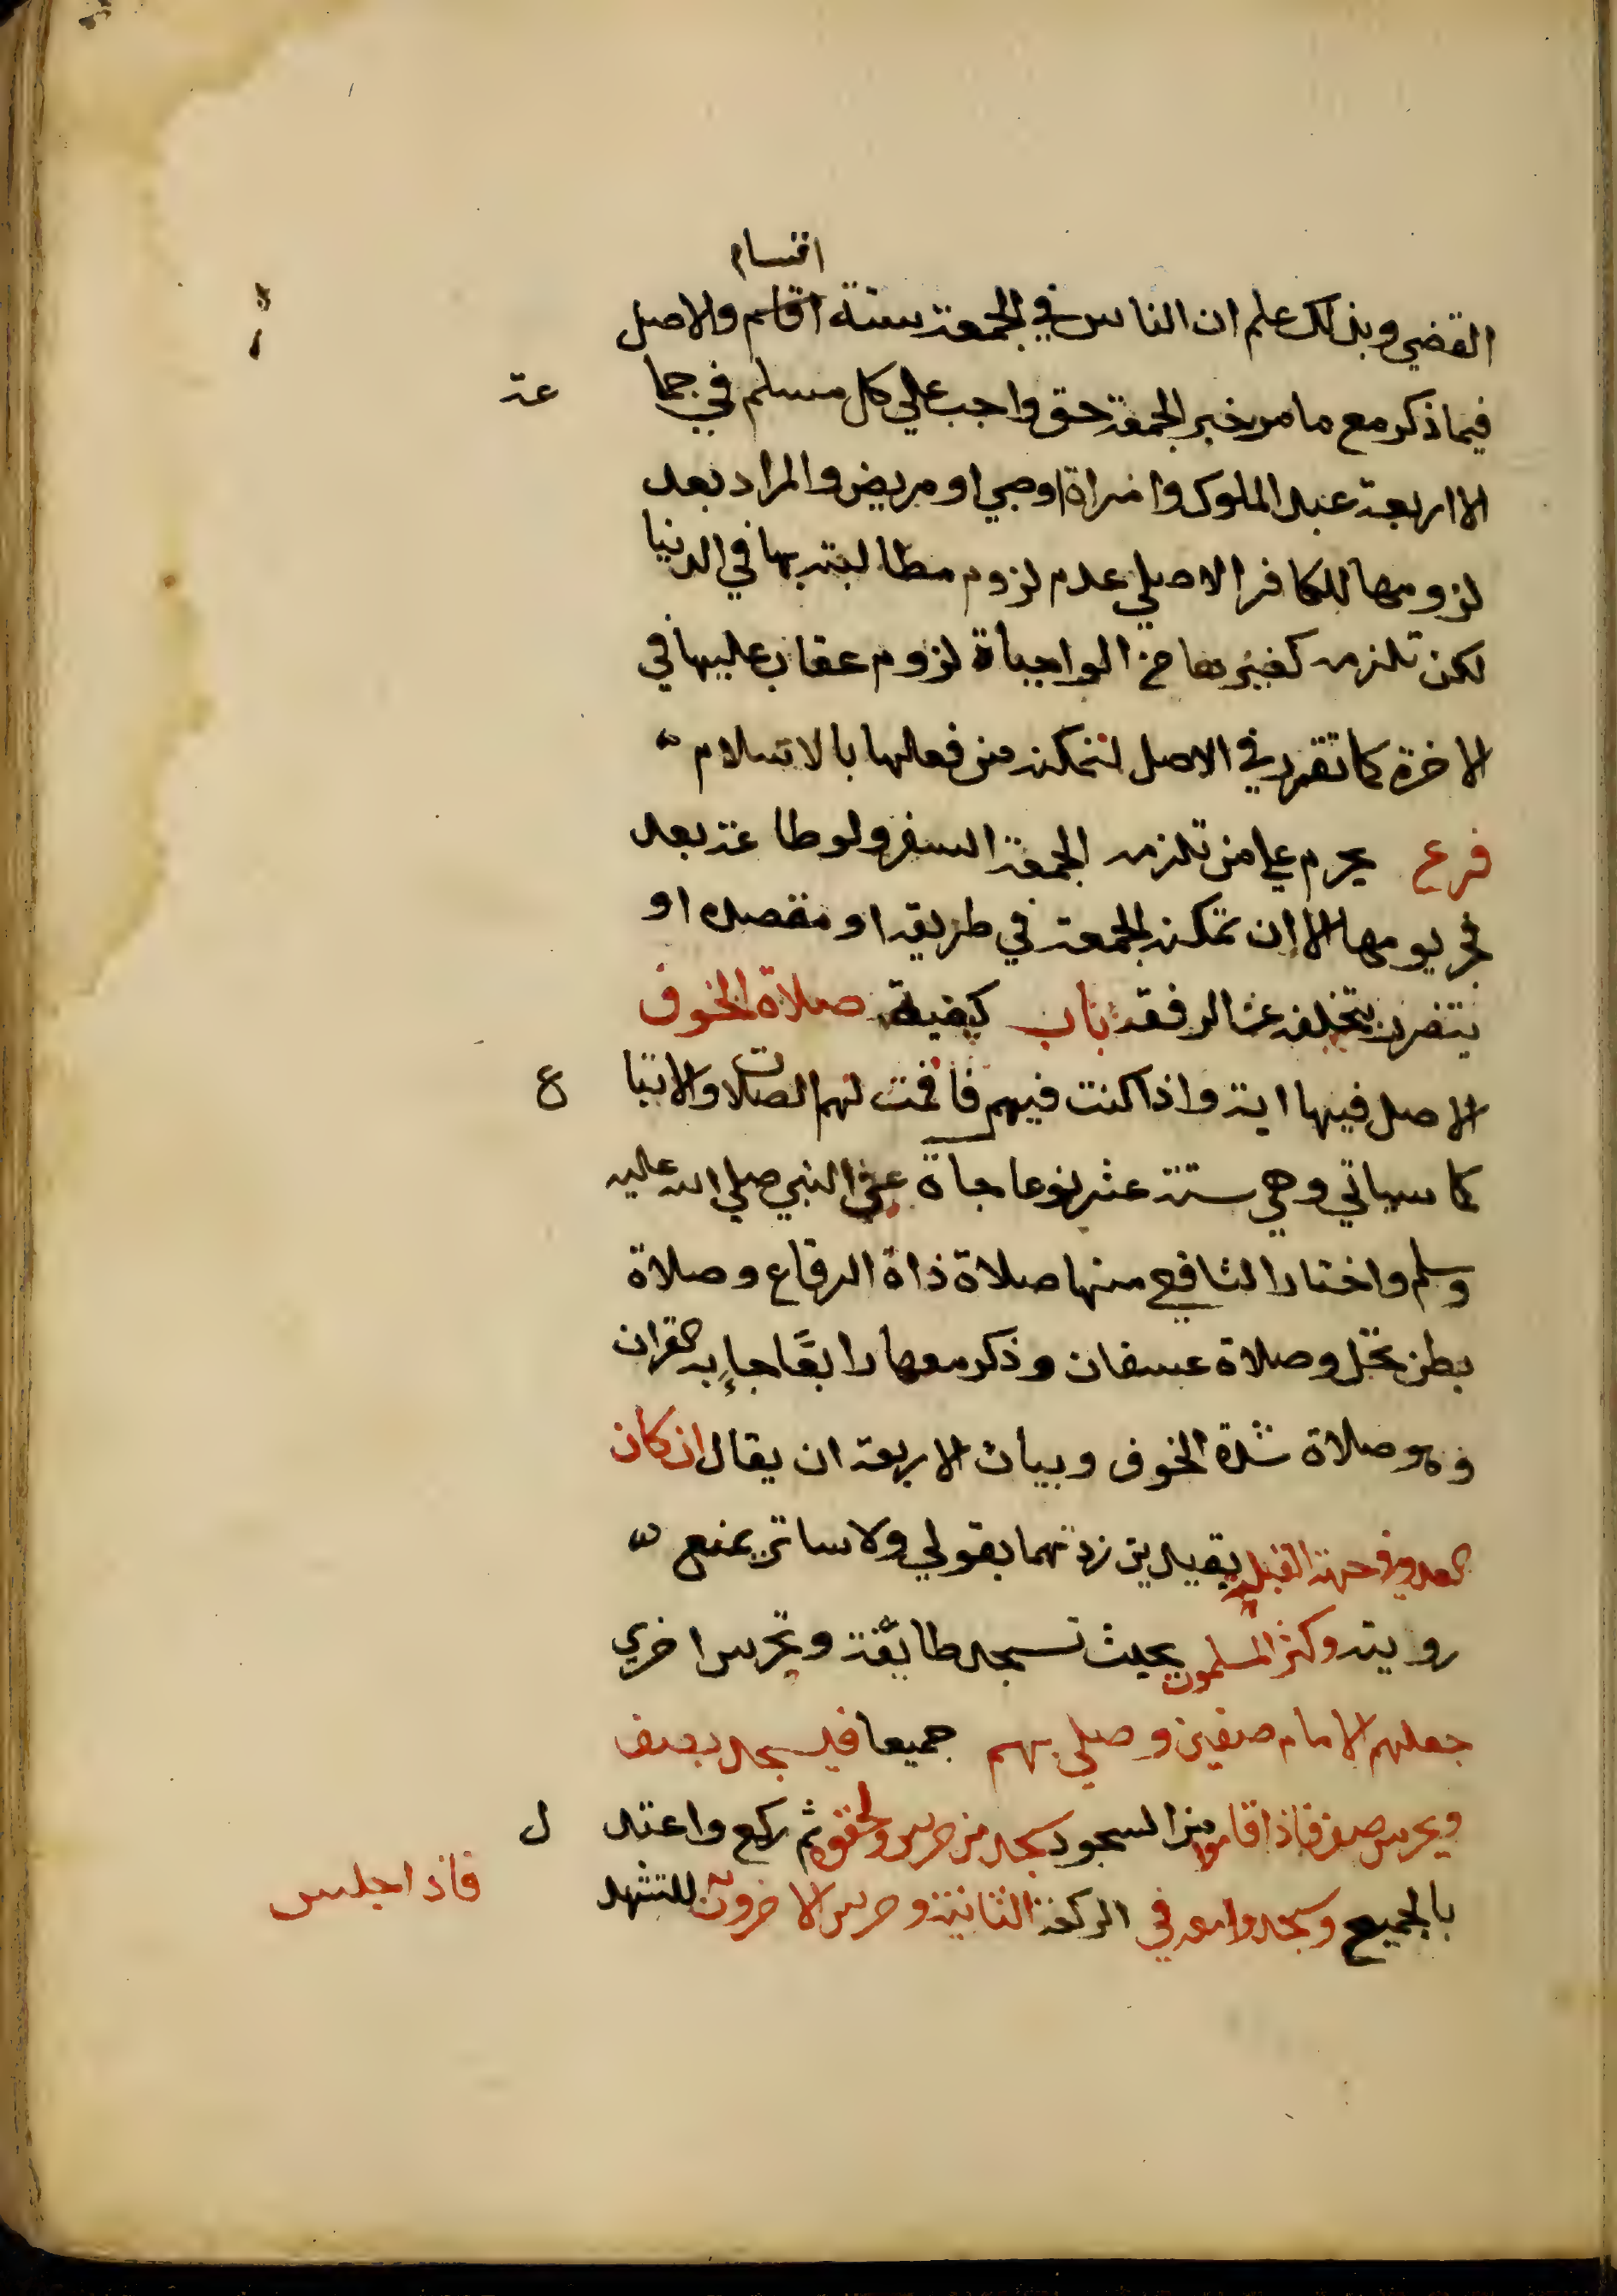 اقسام
القضي وبذلك علم ان الناس في الجمعة ستة اقاسم والاصل
فيما ذكر مع ما مر خبر الجمعة حق واجب علي كل مسلم في جما عة
الا اربعة عبد المملوك وامراة او صبي او مريض والمراد بعد
لزومها للكافر الاصلي عدم لزوم مطالبته بها في الدنيا
لكن تلزمه كغيرها من الواجباة لزوم عقاب عليها في
الاخرة كما تقرر في الاصل لتمكنه من فعلها بالاسلام
فرع يحرم علي من تلزمه الجمعة السفر ولو طاعة بعد
فجر يومها الا ان تمكنه الجمعة في طريقه او مقصده او
يتضرر بتخلفه عن الرفقة باب كيفية صلاة الخوف
الاصل فيها اية واذا كنت فيهم فاقمت لهم الصلات والاتبا ع
كما سياتي وهي ستة عشر نوعا جاة عن النبي صلي الله عليه
وسلم واختار الشافعي منها صلاة ذاة الرقاع وصلاة
بطن نخل وصلاة عسفان وذكر معها رابعًا جاء به القران
وهو صلاة شدة الخوف وبيان الاربعة ان يقال ان كان
العدو في جهة القبلة بقيدين زدتهما بقولي ولا ساتر يمنع
رويته وكثر المسلمون بحيث تسجد طايفة وتحرس اخري
جعلهم الامام صفين وصلي بهم جميعا فيسجد بصف
ويحرس صف فاذا قاموا من السجود سجد من حرس ولحقوه ثم ركع واعتد ل
بالجميع وسجدوا معه في الركعة الثانية وحرس الاخرون للتشهد فاذا جلس